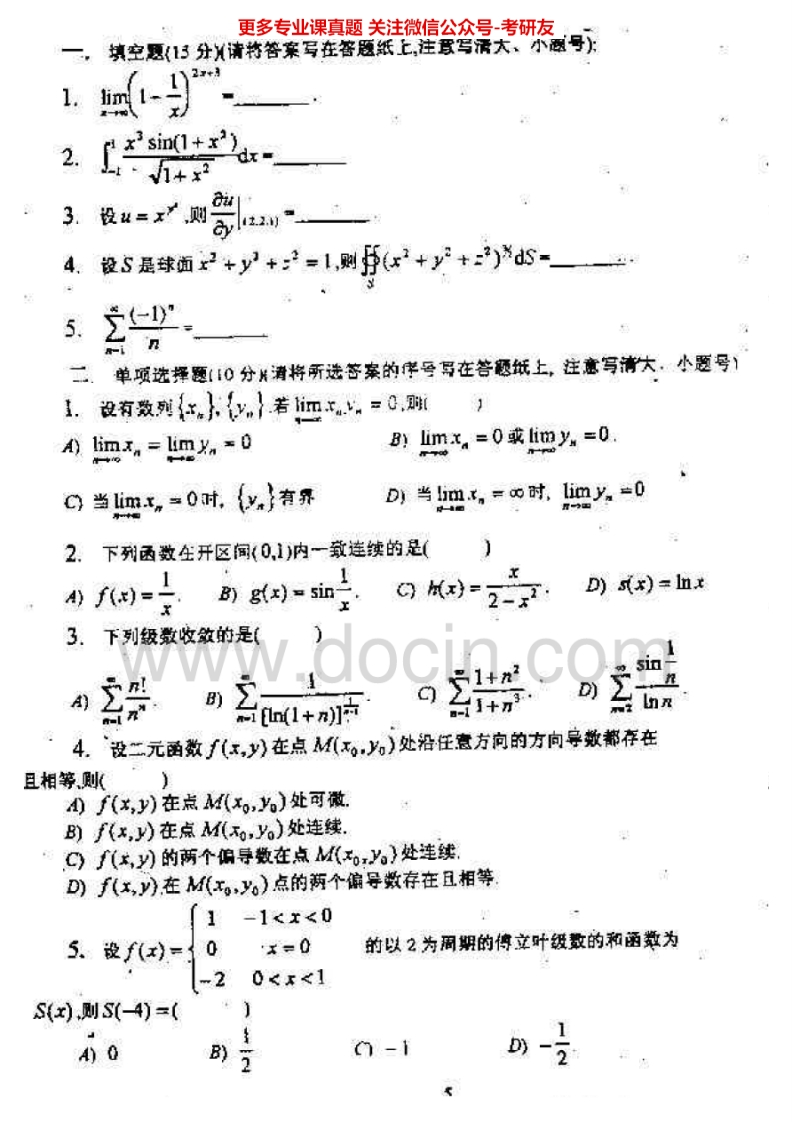 更多专业课真题 关注微信公众号-考研友
一、填空题(15 分)(请将答案写在答题纸上,注意写清大、小题号):
1. $\lim_{x\to\infty}\left(1-\frac{1}{x}\right)^{2x+3}=$______.
2. $\int_{-1}^{1}\frac{x^3\sin(1+x^2)}{\sqrt{1+x^2}}dx=$______
3. 设 $u=x^{y^z}$,则 $\left.\frac{\partial u}{\partial y}\right|_{(2,2,1)}=$______.
4. 设 S 是球面 $x^2+y^2+z^2=1$,则 $\oiint_S(x^2+y^2+z^2)$ dS=______.
5. $\sum_{n=1}^{\infty}\frac{(-1)^n}{n}=$______
二. 单项选择题(10 分)(请将所选答案的序号写在答题纸上, 注意写清大、小题号)
1. 设有数列 $\{x_n\},\{y_n\}$.若 $\lim_{n\to\infty}x_ny_n=0$,则( )
A) $\lim_{n\to\infty}x_n=\lim_{n\to\infty}y_n=0$ B) $\lim_{n\to\infty}x_n=0$ 或 $\lim_{n\to\infty}y_n=0$.
C) 当 $\lim_{n\to\infty}x_n=0$ 时, $\{y_n\}$ 有界 D) 当 $\lim_{n\to\infty}x_n=\infty$ 时, $\lim_{n\to\infty}y_n=0$
2. 下列函数在开区间(0,1)内一致连续的是( )
A) $f(x)=\frac{1}{x}$. B) $g(x)=\sin\frac{1}{x}$. C) $h(x)=\frac{x}{2-x^2}$. D) $s(x)=\ln x$
3. 下列级数收敛的是( )
www.docin.com
A) $\sum_{n=1}^{\infty}\frac{n!}{n^n}$. B) $\sum_{n=1}^{\infty}\frac{1}{[\ln(1+n)]^{\frac{1}{n-1}}}$. C) $\sum_{n=1}^{\infty}\frac{1+n^2}{1+n^3}$. D) $\sum_{n=2}^{\infty}\frac{\sin\frac{1}{n}}{\ln n}$.
4. 设二元函数 $f(x,y)$ 在点 $M(x_0,y_0)$ 处沿任意方向的方向导数都存在
且相等,则( )
A) $f(x,y)$ 在点 $M(x_0,y_0)$ 处可微.
B) $f(x,y)$ 在点 $M(x_0,y_0)$ 处连续.
C) $f(x,y)$ 的两个偏导数在点 $M(x_0,y_0)$ 处连续.
D) $f(x,y)$ 在 $M(x_0,y_0)$ 点的两个偏导数存在且相等.
5. 设 $f(x)=\begin{cases}1 & -1<x<0\\0 & x=0\\-2 & 0<x<1\end{cases}$ 的以 2 为周期的傅立叶级数的和函数为
S(x),则 S(-4)=( )
A) 0 B) $\frac{1}{2}$ C) -1 D) $-\frac{1}{2}$.
5